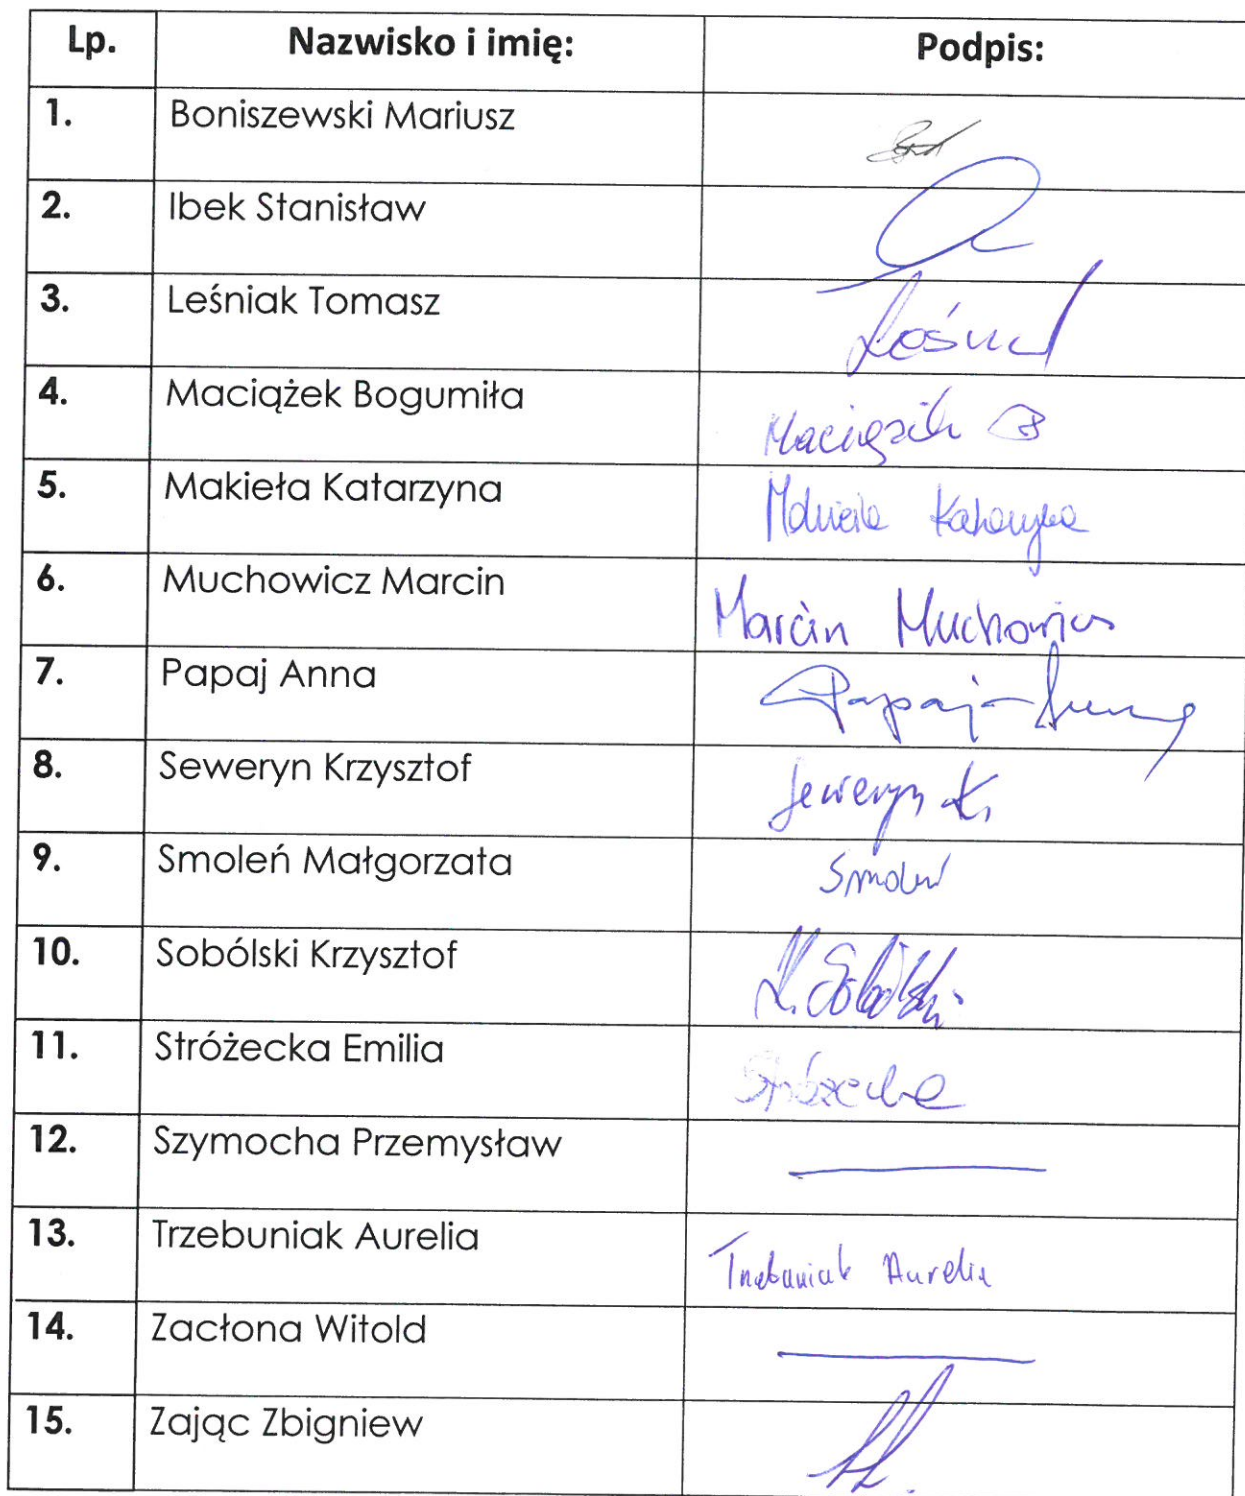 Lp. Nazwisko i imię: Podpis:
1. Boniszewski Mariusz
2. Ibek Stanisław
3. Leśniak Tomasz
4. Maciążek Bogumiła Maciążek B
5. Makieła Katarzyna Makieła Katarzyna
6. Muchowicz Marcin Marcin Muchowicz
7. Papaj Anna Papaj Anna
8. Seweryn Krzysztof Seweryn K.
9. Smoleń Małgorzata Smoleń
10. Sobólski Krzysztof K. Sobólski
11. Stróżecka Emilia Stróżecka
12. Szymocha Przemysław
13. Trzebuniak Aurelia Trzebuniak Aurelia
14. Zacłona Witold
15. Zając Zbigniew